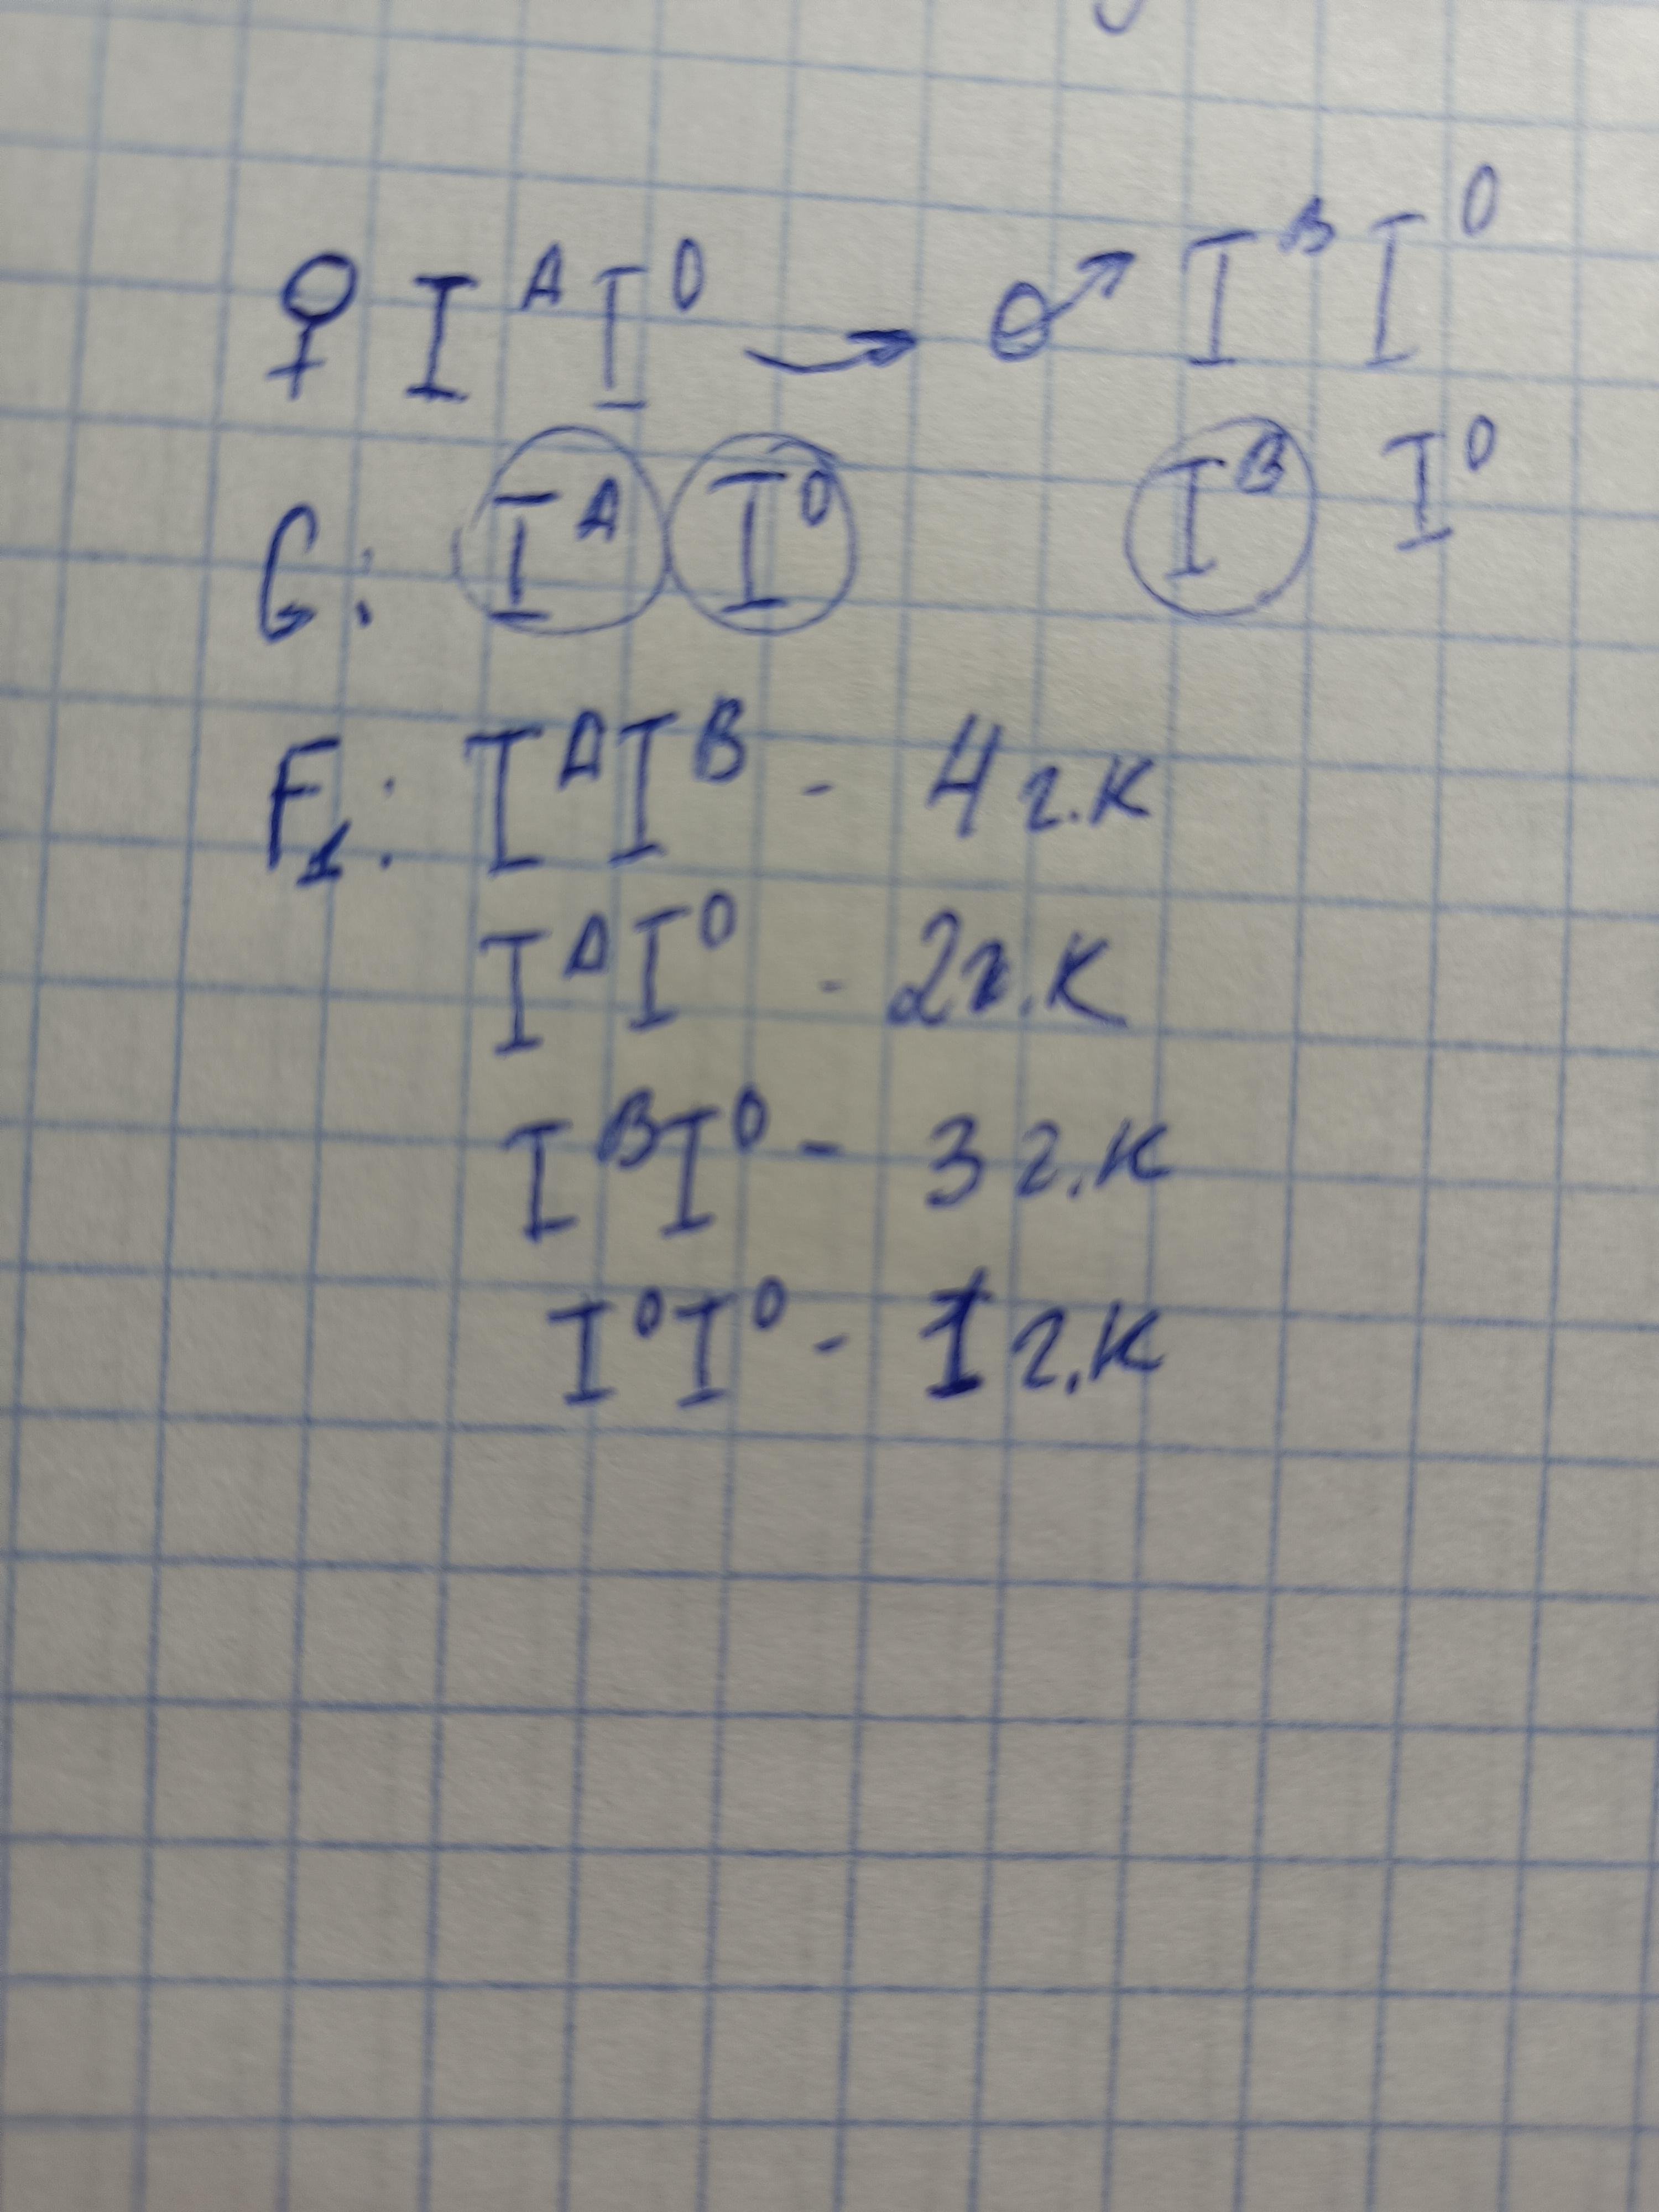 ♀ IᴬI⁰ → ♂ IᴮI⁰
G: Iᴬ I⁰ Iᴮ I⁰
F₁: IᴬIᴮ - 4 г.к
IᴬI⁰ - 2 г.к
IᴮI⁰ - 3 г.к
I⁰I⁰ - 1 г.к